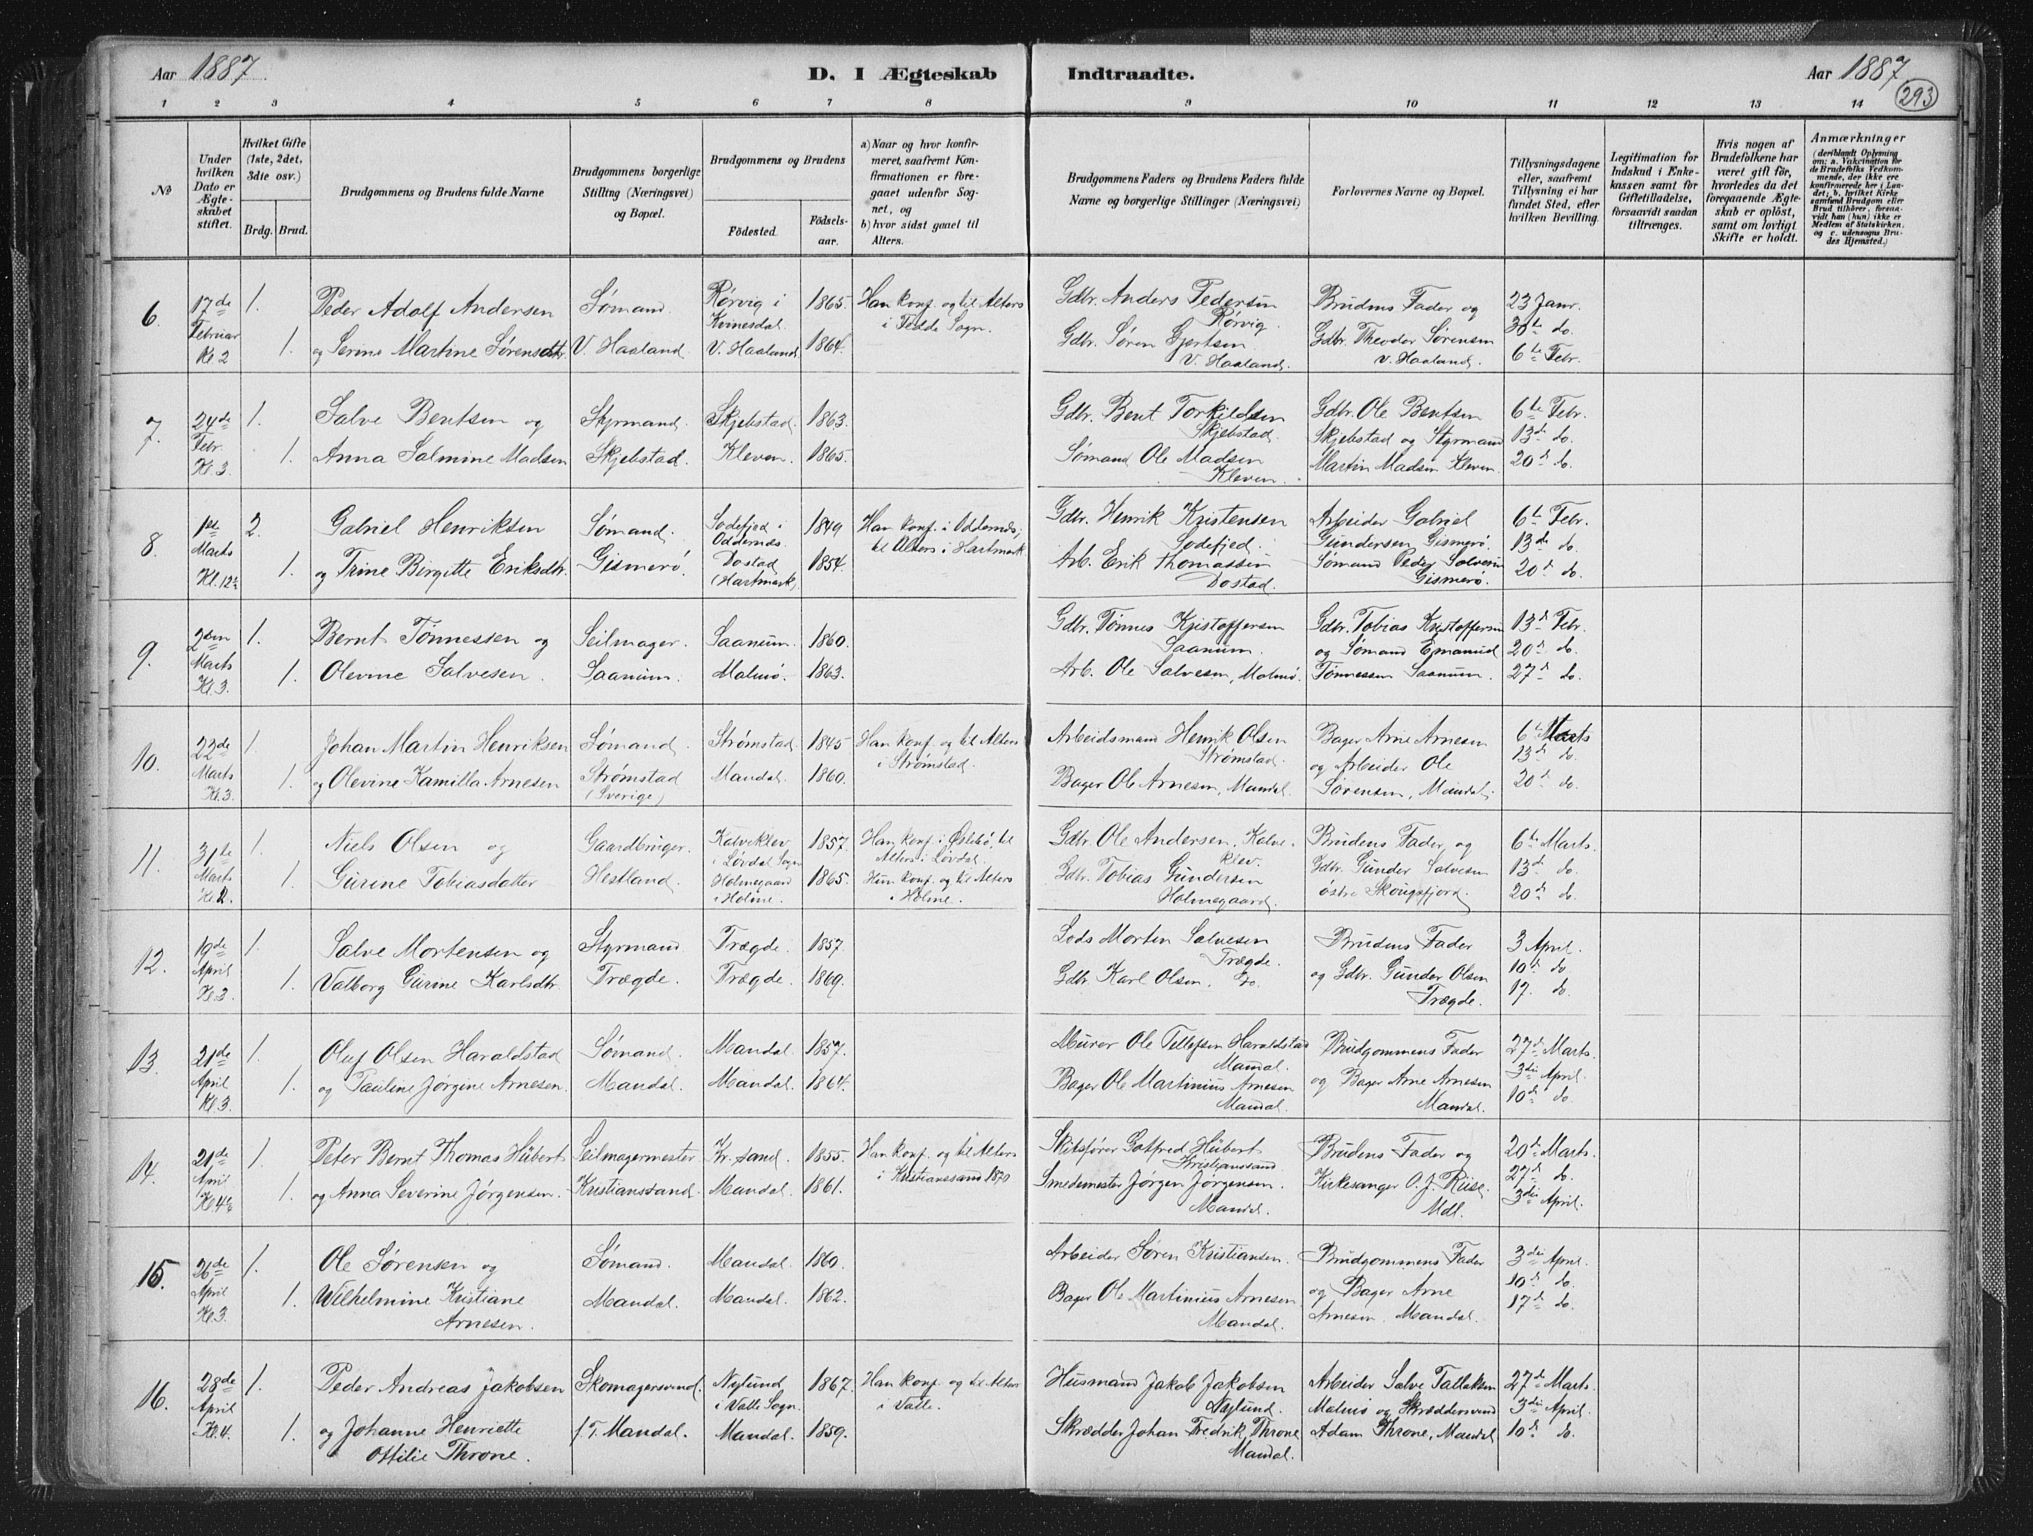 Aar 1887.
D. I Ægteskab
Indtraadte.
Aar 1887
293
1 2 3 4 5 6 7 8 9 10 11 12 13 14
No
Under hvilken Dato er Ægteskabet stiftet.
Hvilket Gifte (1ste, 2det, 3die osv.)
Brdg. Brud.
Brudgommens og Brudens fulde Navne
Brudgommens borgerlige Stilling (Næringsvei) og Bopæl.
Brudgommens og Brudens
Födested.
Födselsaar.
a) Naar og hvor konfirmeret, saafremt Konfirmationen er foregaaet udenfor Sognet, og
b) hvor sidst gaaet til Alters.
Brudgommens Faders og Brudens Faders fulde Navne og borgerlige Stillinger (Næringsvei)
Forlovernes Navne og Bopæl.
Tillysningsdagene eller, saafremt Tillysning ei har fundet Sted, efter hvilken Bevilling.
Legitimation for Indskud i Enkekassen samt for Giftetilladelse, forsaavidt saadan tiltrænges.
Hvis nogen af Brudefolkene har været gift för, hvorledes da det foregaaende Ægteskab er oplöst, samt om lovligt Skifte er holdt.
Anmærkninger
(deriblandt Oplysning om: a. Vakcination for Brudefolks Vedkommende, der ikke ere konfirmerede her i Landet; b. hvilket Kirkesamfund Brudgom eller Brud tilhörer, forsaavidt han (hun) ikke er Medlem af Statskirken, og c. udensogns Brudes Hjemsted.)
6. 17de Februar Kl 2 1. Peder Adolf Andersen Sømand. Rørvig i Kvinesdal. 1865 Han konf. og til Alters i Fedde Sogn. Gdbr. Anders Pedersen Rørvig. Brudens Fader og 23 Janr.
1. og Serine Martine Sørensdtr. V. Haaland. V. Haaland 1864. Gdbr. Søren Gjertsen V. Haaland. Gdbr. Theodor Sørensen V. Haaland. 30te do. 6te Febr.
7. 24de Febr. Kl 3 1. Salve Bentsen og Styrmand. Skjebstad. 1863. Gdbr. Bent Torkildsen Skjebstad. Gdbr. Ole Bentsen Skjebstad og Styrmand 6te Febr. 13de do.
1. Anna Salmine Madsen Skjebstad. Kleven. 1865. Sømand Ole Madsen Kleven. Martin Madsen Kleven. 20de do.
8. 1ste Marts Kl. 12½ 2. Gabriel Henriksen Sømand. Sodefjed i Oddernæs. 1849 Han konf. i Oddernæs, til Alters i Hartmark Gdbr. Henrik Kristensen Sodefjed. Arbeider Gabriel Gundersen Gismerø. 6te Febr. 13de do.
1. og Trine Bergitte Eriksdtr. Gismerø. Dostad (Hartmark). 1854. Arb. Erik Thomassen Dostad. Sømand Peder Salvesen Gismerø. 20de do.
9. 2den Marts Kl. 3. 1. Bernt Tønnessen og Seilmager. Saanum. 1860. Gdbr. Tønnes Kristoffersen Saanum. Gdbr. Tobias Kristoffersen og Sømand Emanuel 13de Febr. 20de do.
1. Olevine Salvesen. Saanum. Malmø. 1863. Arb. Ole Salvesen, Malmø. Tønnessen Saanum. 27de do.
10. 23de Marts Kl. 3. 1. Johan Martin Henriksen Sømand. Strømstad 1845 Han konf. og til Alters i Strømstad. Arbeidsmand Henrik Olsen Strømstad. Bager Arne Arnesen og Arbeider Ole 6te Marts 13de do.
1. og Olevine Kamilla Arnesen Strømstad (Sverige) Mandal. 1860. Bager Ole Arnesen, Mandal. Sørensen, Mandal. 20de do.
11. 31te Marts Kl. 2. 1. Niels Olsen og Gaardbruger. Kalveklev i Løvdal Sogn 1857. Han konf. i Øslebø, til Alters i Løvdal. Gdbr. Ole Andersen, Kalveklev. Brudens Fader, og 6te Marts.
1. Gurine Tobiasdatter Hestland. Holmegaard i Holme. 1865. Hun konf. og til Alters i Holme. Gdbr. Tobias Gundersen Holmegaard. Gdbr. Gunder Salvesen østre Skougsfjord. 13de do. 20de do.
12. 19de April Kl. 3. 1. Salve Mortensen og Styrmand. Trægde. 1857. Lods Morten Salvesen Trægde. Brudens Fader 3 April. 10de do.
1. Valborg Gurine Karlsdtr. Trægde. Trægde. 1869. Gdbr. Karl Olsen. do. og Gdbr. Gunder Olsen Trægde. 17. do.
13. 21de April Kl. 3. 1. Oluf Olsen Haraldstad Sømand. Mandal. 1857. Murer Ole Tellefsen Haraldstad Mandal. Brudgommens Fader 27de Marts.
1. og Pauline Jørgine Arnesen. Mandal. Mandal. 1864. Bager Ole Martinius Arnesen Mandal. og Bager Arne Arnesen Mandal. 3die April. 10de do.
14. 21de April Kl. 4½ 1. Peter Bernt Thomas Hübert Seilmagermester Kr. sand. 1855. Han konf. og til Alters i Kristianssand 1870 Skibsfører Gotfred Hübert Kristianssand Brudens Fader og 20de Marts.
1. og Anna Severine Jørgensen. Kristianssand. Mandal. 1861. Smedemester Jørgen Jørgensen. Mandal. Kirkesanger O. J. Riise. Mdl. 27de do. 3die April.
15. 26de April Kl. 3. 1. Ole Sørensen og Sømand. Mandal. 1860. Arbeider Søren Kristiansen. Brudgommens Fader 3die April.
1. Wilhelmine Kristiane Arnesen. Mandal. Mandal. 1862. Bager Ole Martinius Arnesen Mandal. og Bager Arne Arnesen. Mandal. 10de do. 17de do.
16. 28de April Kl. 4. 1. Peder Andreas Jakobsen Skomagersvend. Nylund i Valle Sogn. 1867. Han konf. og til Alters i Valle. Husmand Jakob Jakobsen Nylund. Arbeider Salve Tallaksen Malmø og Skræddersvend 27de Marts. 3die April.
1. og Johanne Henriette Ottilie Throne. f. T. Mandal. Mandal. 1859. Skrædder Johan Fredrik Throne Mandal. Adam Throne, Mandal 10de do.